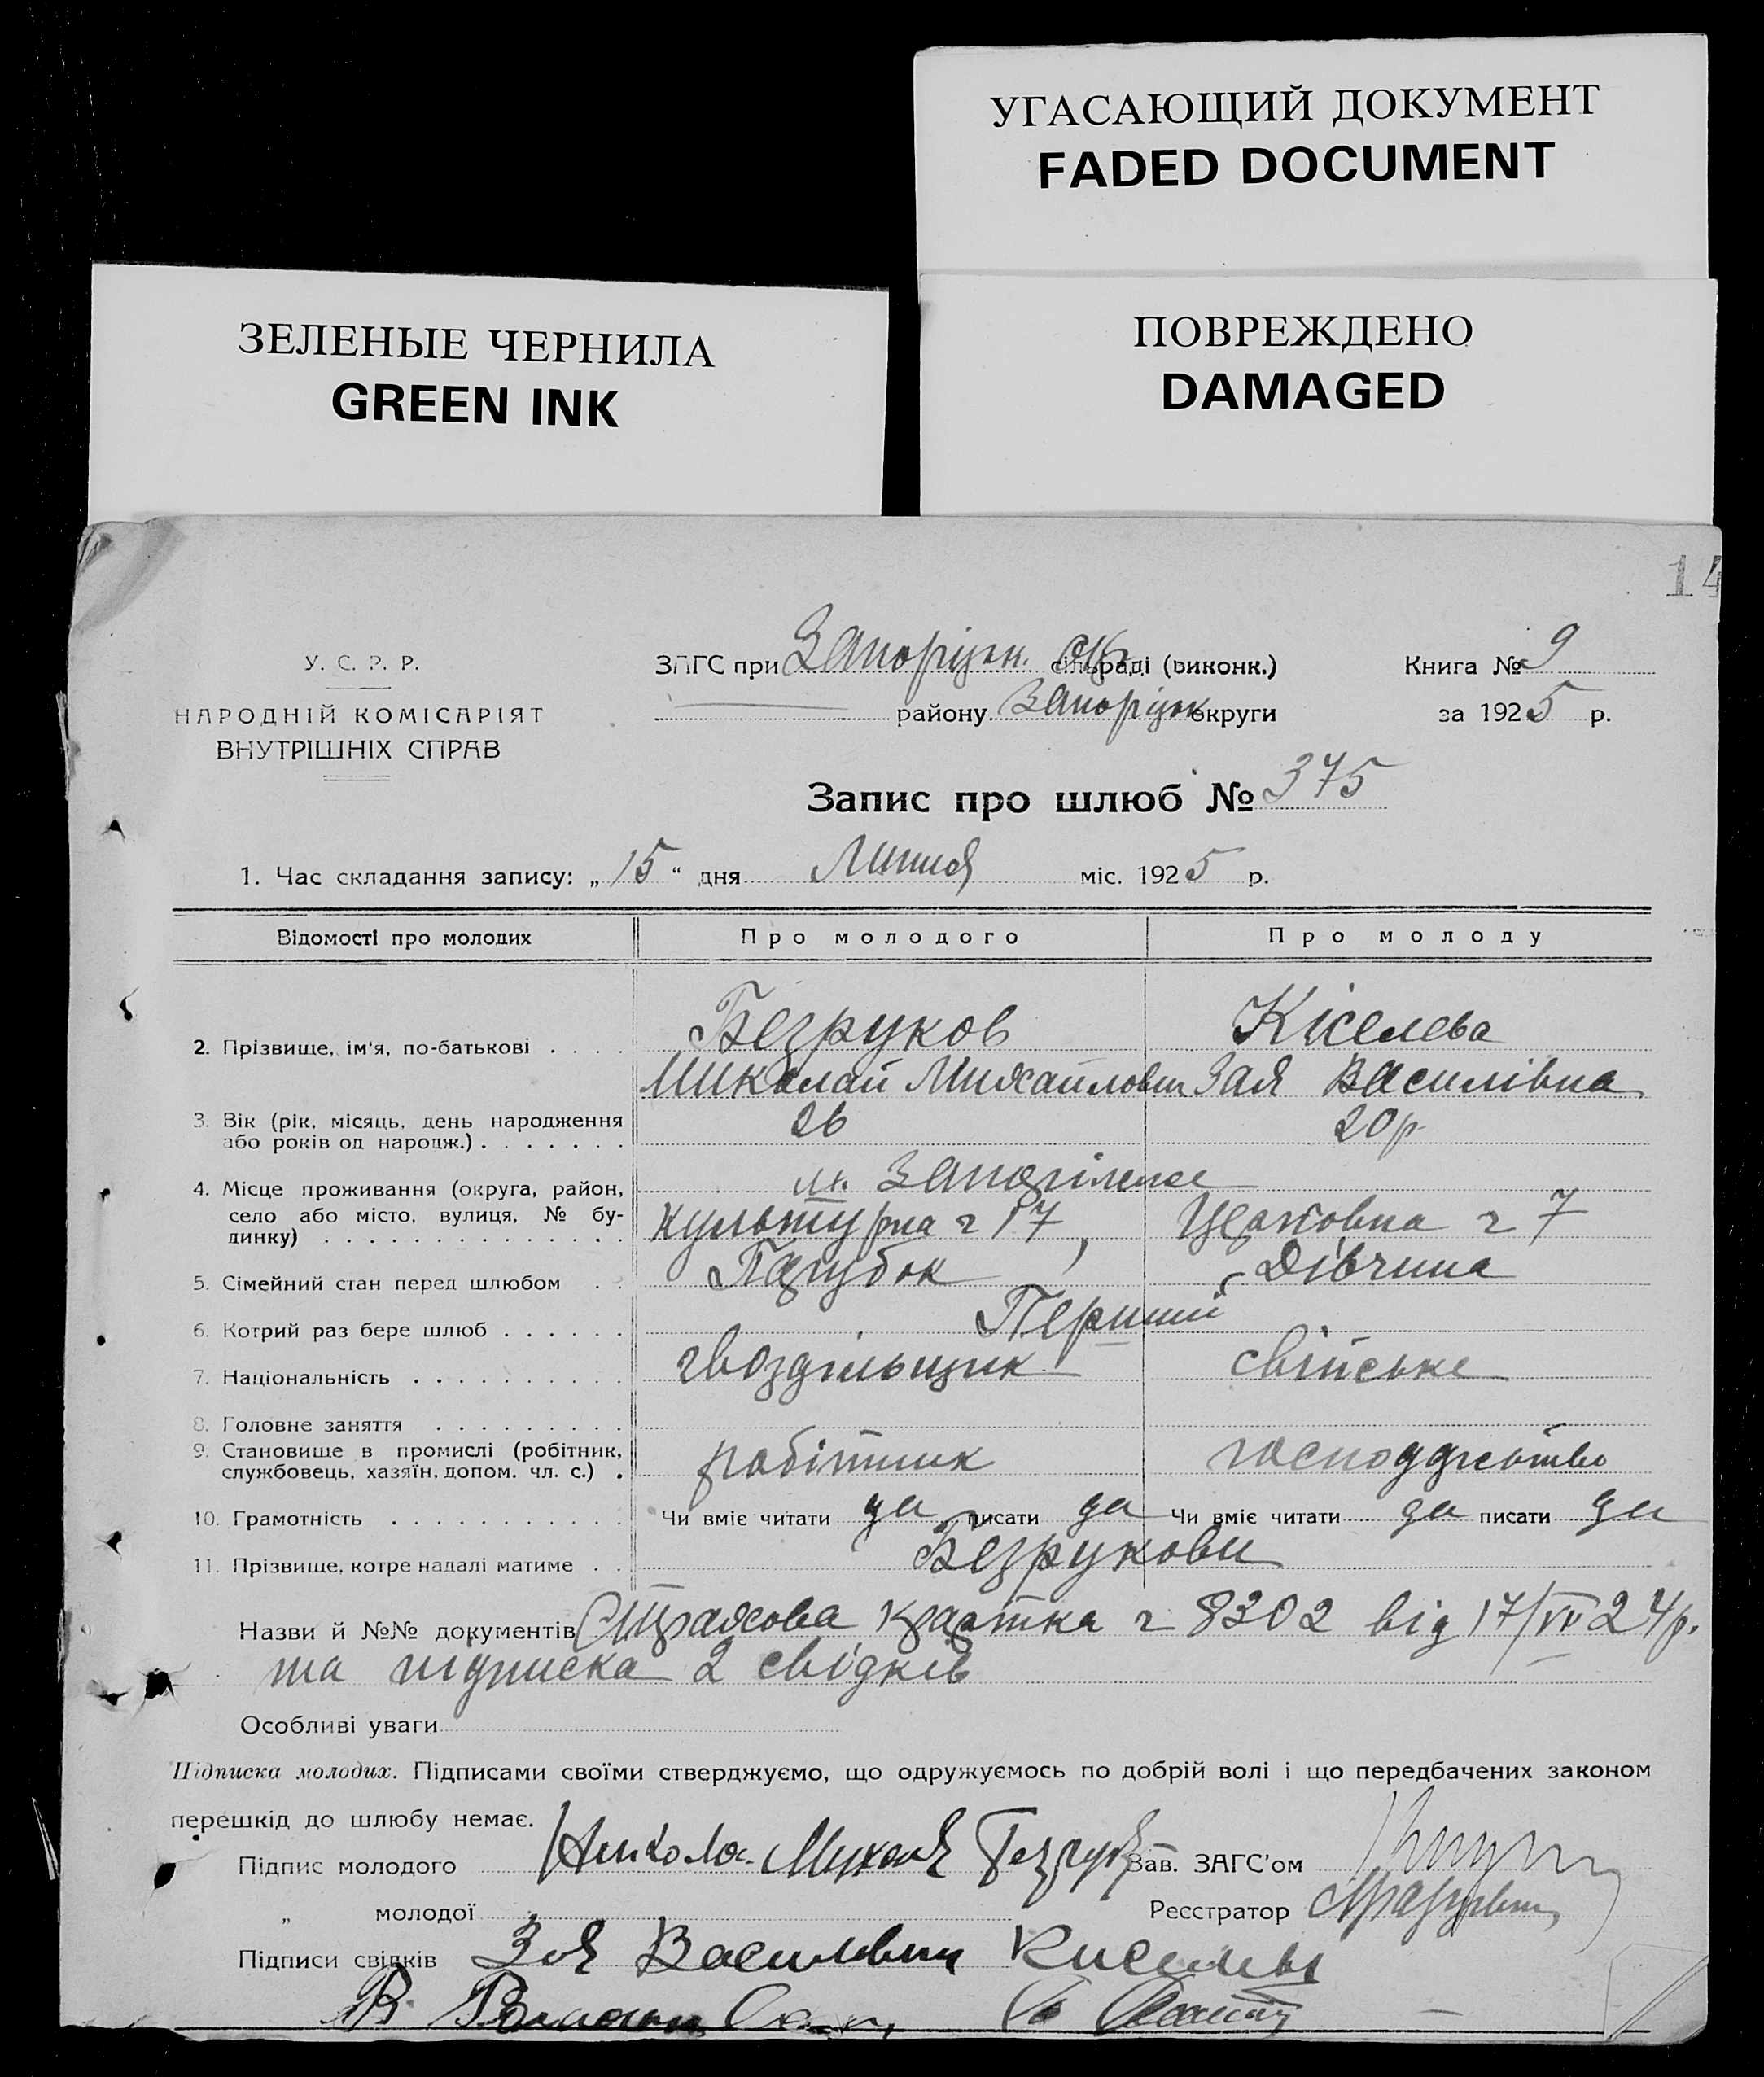 УГАСАЮЩИЙ ДОКУМЕНТ
FADED DOCUMENT
ЗЕЛЕНЫЕ ЧЕРНИЛА
GREEN INK
ПОВРЕЖДЕНО
DAMAGED
14
У. С. Р. Р.
НАРОДНІЙ КОМІСАРІЯТ
ВНУТРІШНІХ СПРАВ
ЗАГС при Запоріжн. сільраді (виконк.)
району Запоріжж округи
Книга № 9
за 1925 р.
Запис про шлюб № 375
1. Час складання запису: „ 15 “ дня Липня міс. 1925 р.
Відомості про молодих Про молодого Про молоду
2. Прізвище, ім'я, по-батькові . . . . Безруков Кіселева
Миколай Михайлович Зая Василівна
3. Вік (рік, місяць, день народження 26 20 р.
або років од народж.) . . . . . . .
4. Місце проживання (округа, район, м. Запоріжже
село або місто, вулиця, № бу- Культурна ч 17, ч 7
динку) . . . . . . . . . . . . . .
5. Сімейний стан перед шлюбом . . Парубок Дівчина
6. Котрий раз бере шлюб . . . . . . Перший
7. Національність . . . . . . . . . . гвоздільщик свійське
8. Головне заняття . . . . . . . . .
9. Становище в промислі (робітник, робітник господдрество
службовець, хазяїн, допом. чл. с.) .
10. Грамотність . . . . . . . . . . . Чи вміє читати да писати да Чи вміє читати да писати да
11. Прізвище, котре надалі матиме . . Безрукови
Назви й №№ документів Страхова картка ч 8302 від 17/VII 24 р.
та підписка 2 свідків
Особливі уваги
Підписка молодих. Підписами своїми стверджуємо, що одружуємось по добрій волі і що передбачених законом
перешкід до шлюбу немає.
Підпис молодого Никола. Зав. ЗАГС'ом
„ молодої Реєстратор
Підписи свідків Зоя